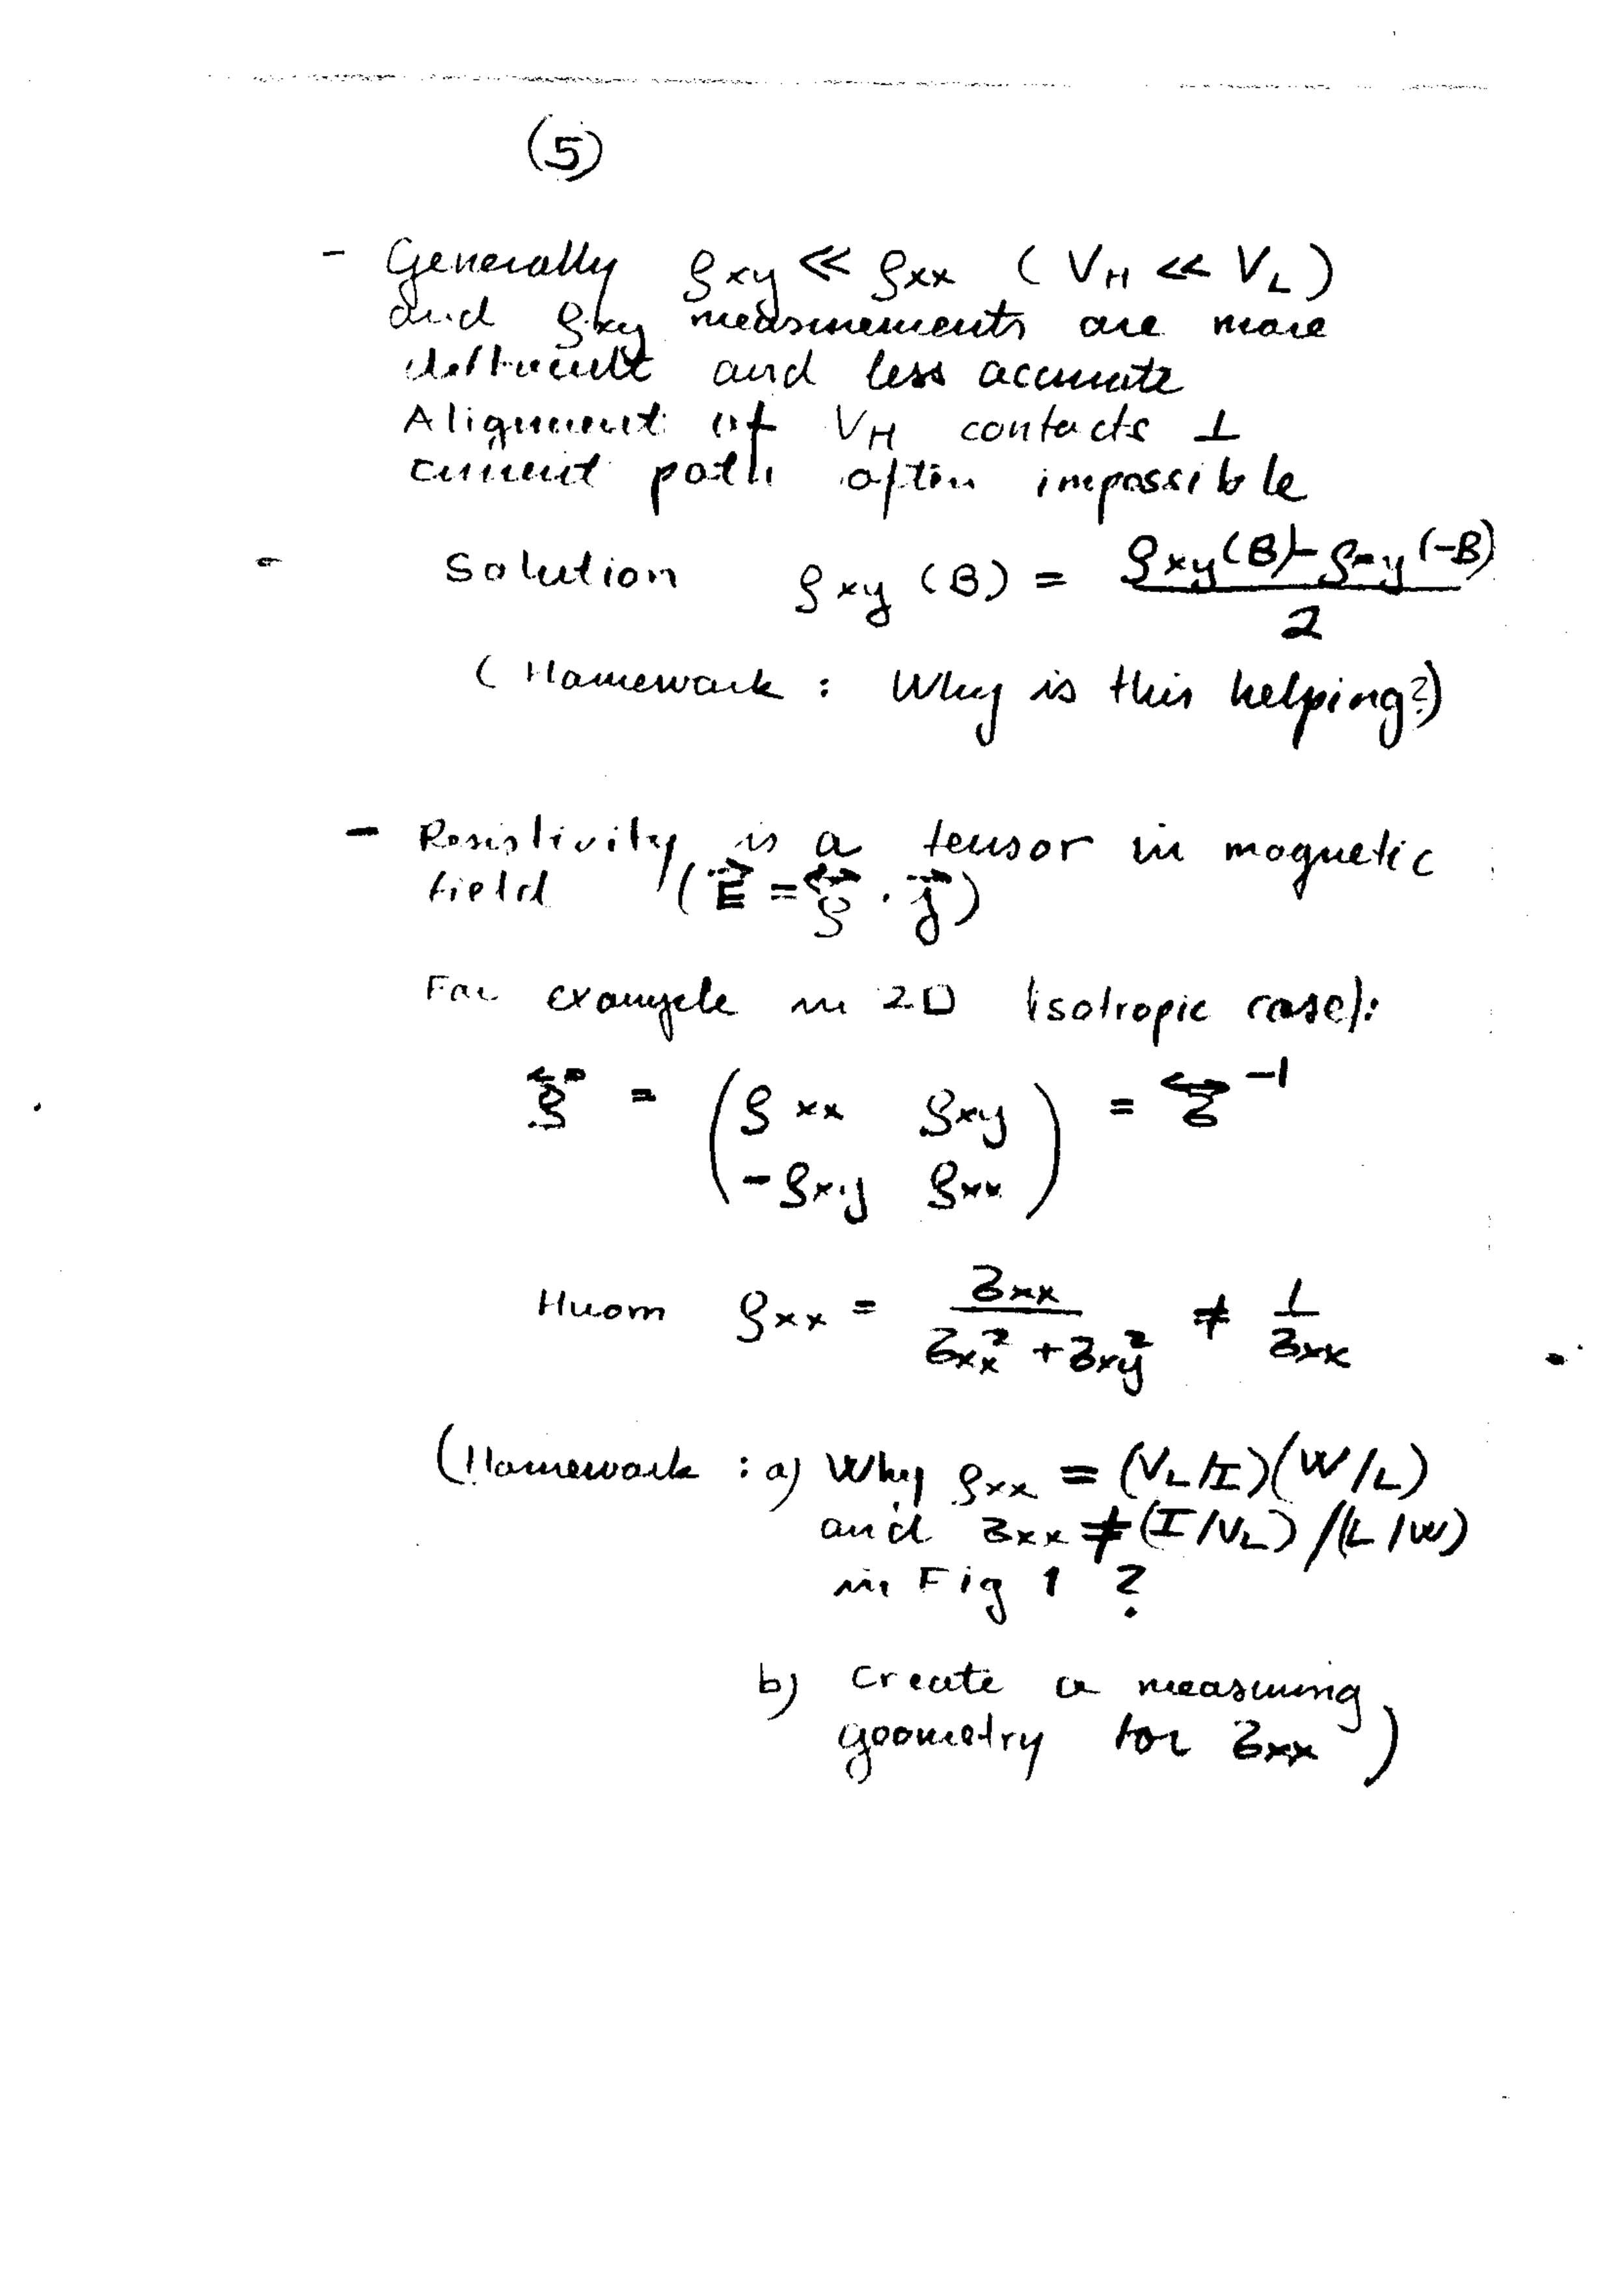 (5)
- Generally ρxy ≪ ρxx (VH ≪ VL)
and ρxy measurements are more
difficult and less accurate
Alignment of VH contacts ⊥
current path often impossible
- Solution ρxy (B) = (ρxy(B) - ρxy(-B)) / 2
(Homework : Why is this helping?)
- Resistivity is a tensor in magnetic
field (E⃗ = ρ⃡ · j⃗)
For example in 2D (isotropic case):
ρ⃡ = ( ρxx ρxy
-ρxy ρxx ) = σ⃡⁻¹
Huom ρxx = σxx / (σxx² + σxy²) ≠ 1/σxx
(Homework : a) Why ρxx = (VL/I)(W/L)
and σxx ≠ (I/VL)/(L/W)
in Fig 1 ?
b) Create a measuring
geometry for σxx )